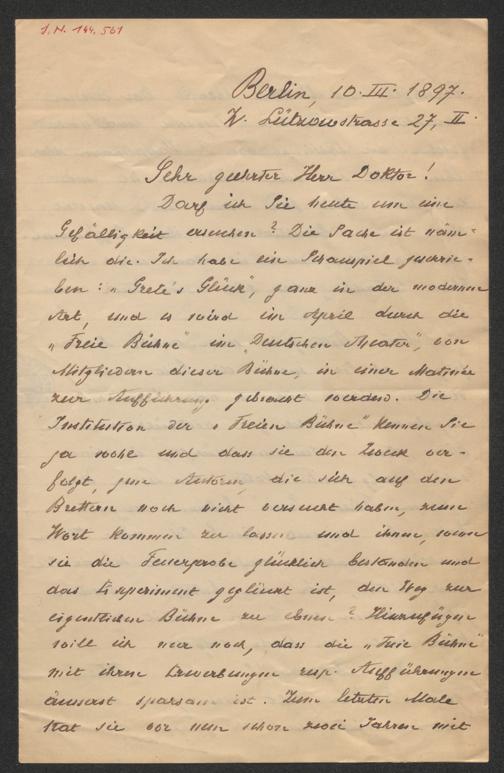 J. N. 144.561
Berlin, 10. III. 1897.
W. Lützowstrasse 27, II.
Sehr geehrter Herr Doktor!
Darf ich Sie heute um eine
Gefälligkeit ersuchen? Die Sache ist näm-
lich die. Ich habe ein Schauspiel geschrie-
ben: „Grete's Glück", ganz in der modernen
Art, und es wird im April durch die
„Freie Bühne" im „Deutschen Theater", von
Mitgliedern dieser Bühne, in einer Matinée
zur Aufführung gebracht werden. Die
Institution der „Freien Bühne" kennen Sie
ja wohl und dass sie den Zweck ver-
folgt, jene Autoren, die sich auf den
Brettern noch nicht versucht haben, zum
Wort kommen zu lassen und ihnen, wenn
sie die Feuerprobe glücklich bestanden und
das Experiment geglückt ist, den Weg zur
eigentlichen Bühne zu ebnen? Hinzufügen
will ich nur noch, dass die „Freie Bühne"
mit ihren Erwerbungen resp. Aufführungen
äusserst sparsam ist. Zum letzten Male
trat sie vor nun schon zwei Jahren mit